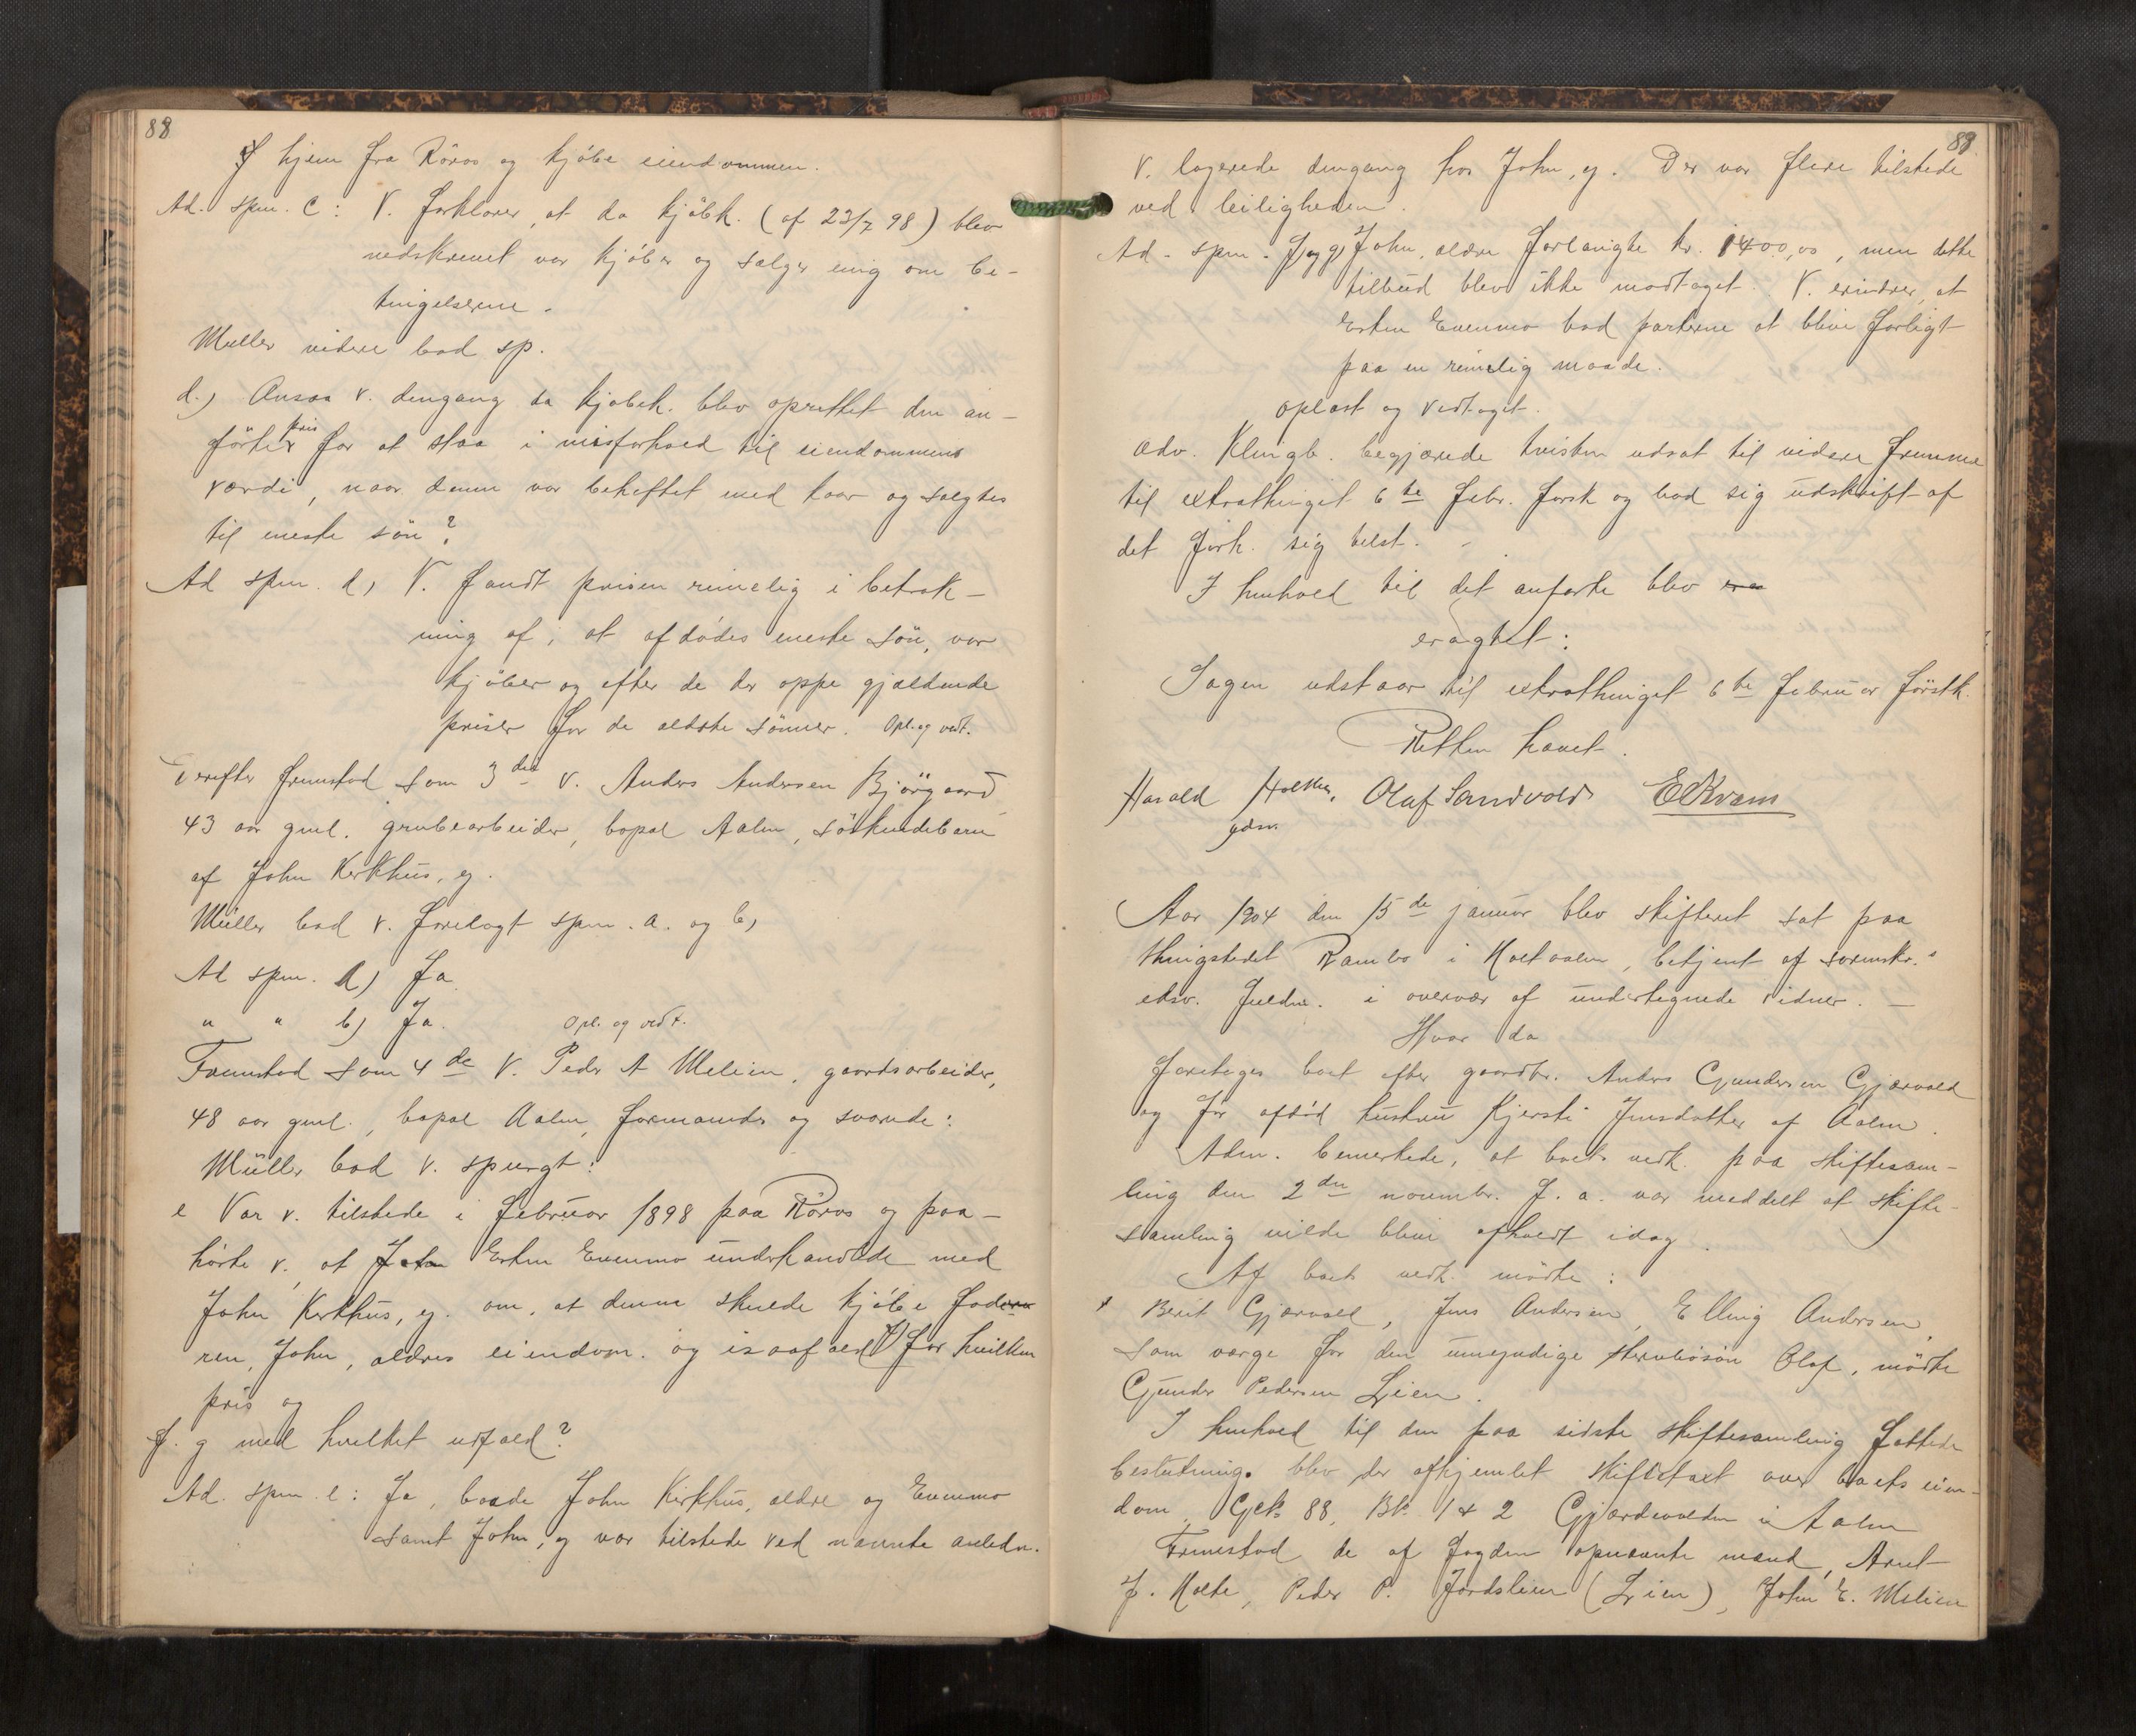 88
hjem fra Röros og kjöbe eiendommen.
Ad. spm. c: V. forklarer, at da kjöbek. (af 23/7 98) blev
nedskrevet var kjöber og sælger enig om be-
tingelserne.
Müller videre bad sp.
d.) Ansaa v. dengang da kjöbek. blev oprettet den an-
förte pris for at staa i misforhold til eiendommens
værdi, naar denne var beheftet med kaar og solgtes
til eneste sön?
Ad spm. d) V. fandt prisen rimelig i betrak-
ning af, at afdödes eneste sön, var
kjöber og efter de der oppe gjældende
priser for de ældste sönner. Opl. og vedt.
Derefter fremstod som 3die v. Anders Andersen Björgaard
43 aar gml. grubearbeider, bopæl Aalen, söskendebarn
af John Kirkhus, y.
Müller bad v. forelagt spm. a. og b,
Ad spm. a) Ja
" " b) Ja. Opl. og vedt.
Fremstod som 4de V. Peder A Melien, gaardsarbeider,
48 aar gml., bopæl Aalen, formanedes og svarede:
Müller bad v. spurgt:
e Var v. tilstede i februar 1898 paa Röros og paa-
hörte v., at John Esten Evenmo underhandlede med
John Kirkhus, y. om, at denne skulde kjöbe fade
ren, John, ældres eiendom. og isaafald f) for hvilken
pris og
g med hvilket udfald?
Ad. spm. e: Ja, baade John Kirkhus, ældre og Evenmo
samt John, y var tilstede ved nævnte anledn.
89
V. logerede dengang hos John, y. Der var flere tilstede
ved leiligheden.
Ad. spm. f) og g) John, ældre forlangte kr. 1400,00, men dette
tilbud blev ikke modtaget. V. erindrer, at
Esten Evenmo bad parterne at blive forligt
paa en rimelig maade.
Oplæst og vedtaget.
Adv. Klingb. begjærede tvisten udsat til videre fremme
til extrathinget 6te febr. förstk og bad sig udskrift af
det fork. sig tilst.
I henhold til det anförte blev
eragtet:
Sagen udstaar til extrathinget 6te februar förstk.
Retten hævet.
Harald Olaf Sandvold EKvam
Aar 1904 den 15de januar blev skifteret sat paa
thingstedet Rambo i Holtaalen, betjent af sorenskr.s
edsv. fuldm. i overvær af undertegnede vidner. —
Hvor da
foretoges boet efter gaardbr. Anders Gundersen Gjærvold
og för afdöd hustru Kjersti Jensdatter af Aalen.
Adm. bemerkede, at boets vedk. paa skiftesam-
ling den 2den novembr. f. a. var meddelt at skifte-
samling vilde blive afholdt idag.
Af boets vedk. mödte:
Berit Gjærvold, Jens Andersen, Elling Andersen,
som værge for den umyndige stervbosön Olaf, mödte
Gunder Pedersen Lien.
I henhold til den paa sidste skiftesamling fattede
beslutning blev der afhjemlet skiftetaxt over boets eien-
dom, 88, Bk. 1 & 2 i Aalen
Fremstod de af fogden opnævnte mænd, Arnt
J. Holte, Peder P. Jordslien (Lien), John E. Melien